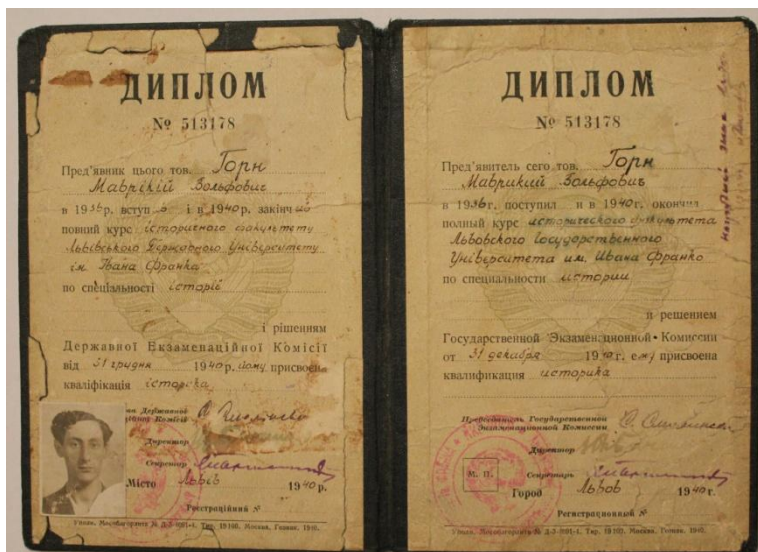 ДИПЛОМ
№ 513178
Пред'явник цього тов. Горн
Маврікій Вольфович
в 1936р. вступ і в 1940р. закінчив
повний курс історичного факультету
Львівського Державного Університету
ім. Івана Франка
по спеціальності історії
і рішенням
Державної Екзаменаційної Комісії
від 31 грудня 1940р. йому присвоєна
кваліфікація історика
Державної
Комісії
Директор
Секретар
Місто Львів 1940р.
Реєстраційний №
ДИПЛОМ
№ 513178
Пред'явитель сего тов. Горн
Маврикий Вольфович
в 1936г. поступил и в 1940г. окончил
полный курс исторического факультета
Львовского Государственного
Университета им. Ивана Франко
по специальности истории
и решением
Государственной Экзаменационной Комиссии
от 31 декабря 1940г. ему присвоена
квалификация историка
Председатель Государственной
Экзаменационной Комиссии
Директор
М. П.
Секретарь
Город Львов 1940г.
Регистрационный №